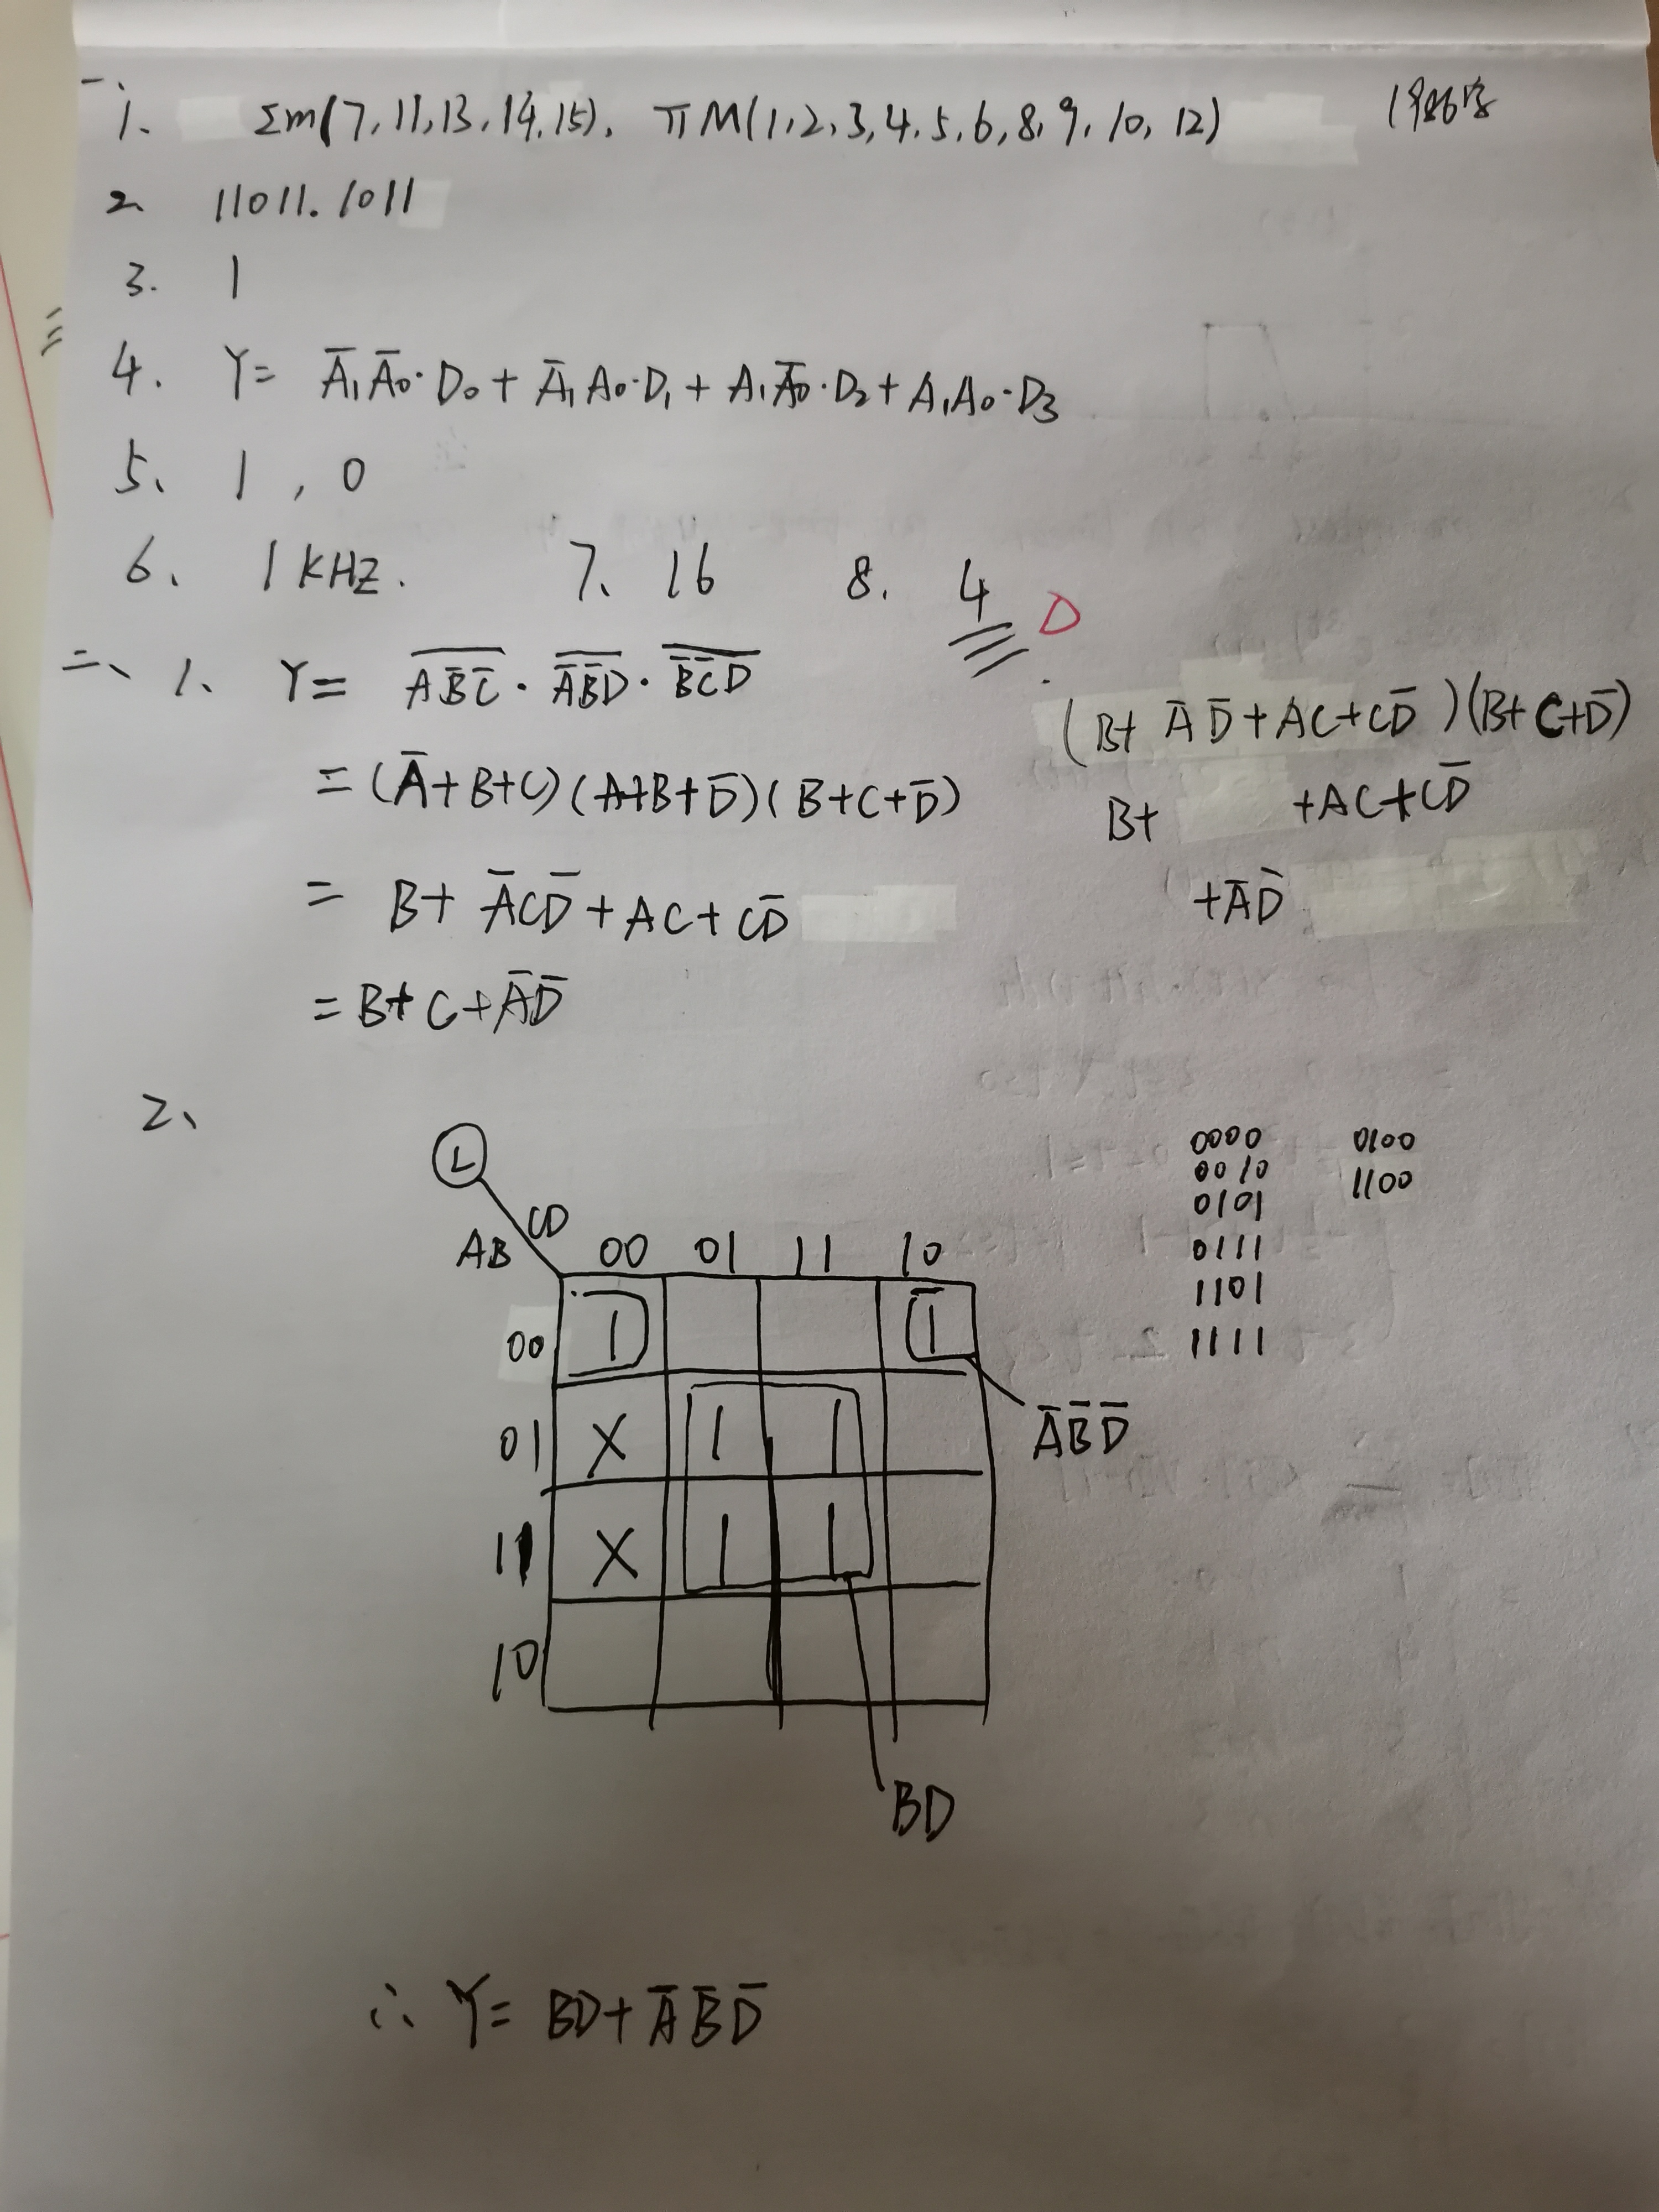 一、
1、 Σm(7,11,13,14,15). πM(1,2,3,4,5,6,8,9,10,12)
2、 11011.1011
3. 1
4. Y= A̅₁A̅₀·D₀+A̅₁A₀·D₁+A₁A̅₀·D₂+A₁A₀·D₃
5、 1 , 0
6、 1KHZ. 7、16 8. 4 D
二、1、 Y= \overline{AB̅C̅}·\overline{A̅B̅D}·\overline{B̅C̅D}
(B+A̅D̅+AC+CD̅)(B+C+D̅)
=(A̅+B+C)(A+B+D̅)(B+C+D̅)
B+ +AC+CD̅
= B+A̅CD̅+AC+CD̅
+A̅D̅
=B+C+A̅D̅
2、
L
CD
AB 00 01 11 10
00 1 1
01 X 1 1
11 X 1 1
10
A̅B̅D̅
BD
0000 0100
0010 1100
0101
0111
1101
1111
∴ Y= BD+A̅B̅D̅